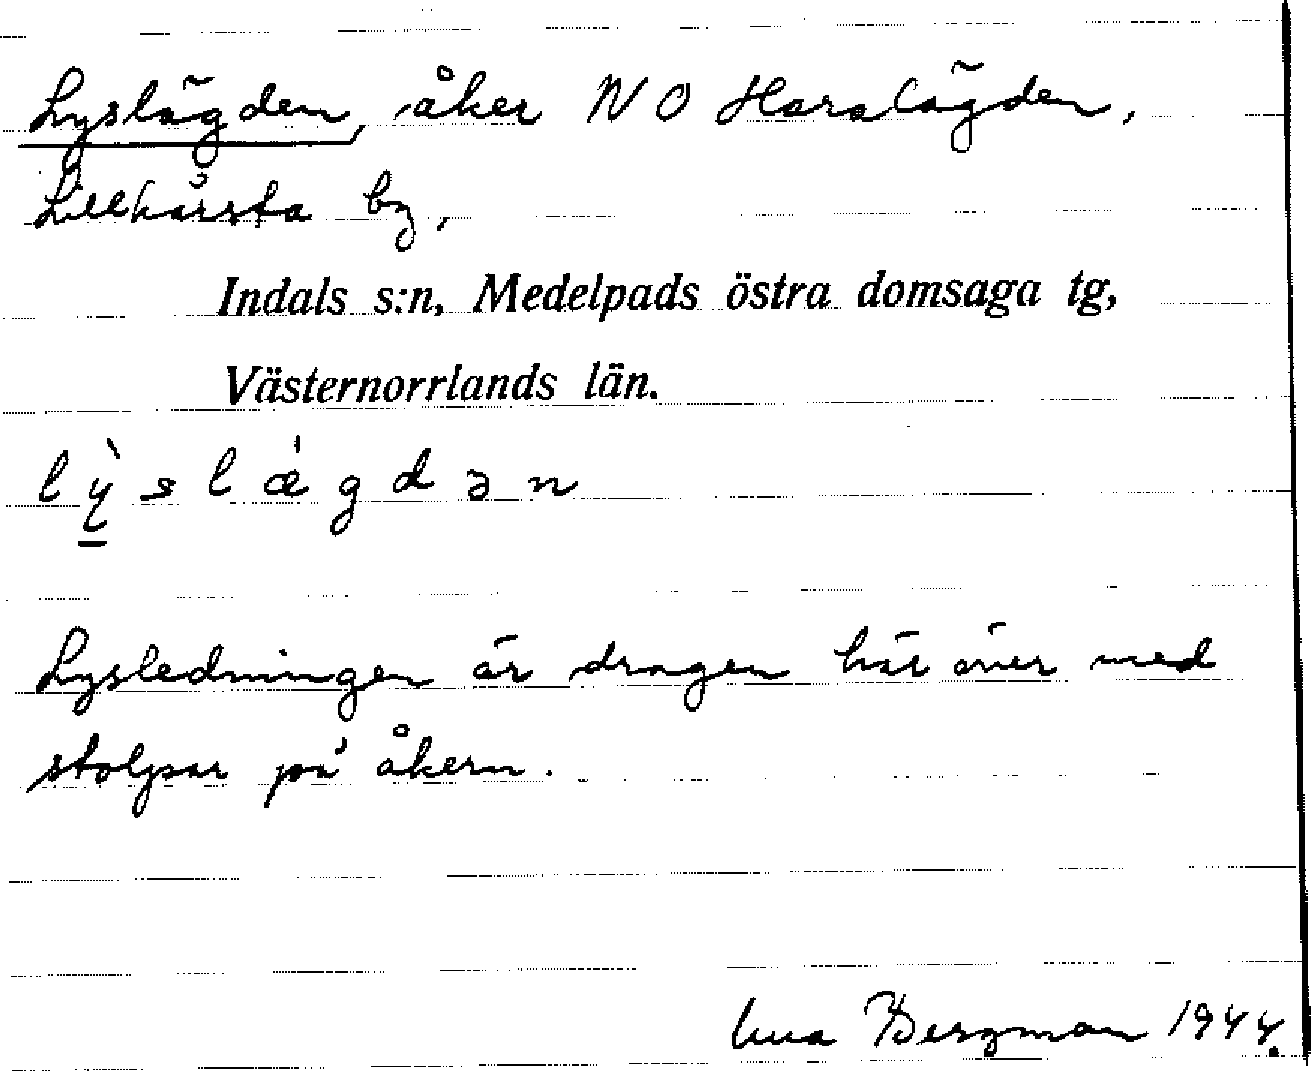 Lyslägden, åker NO Haralägden,
Lillhärsta by,
Indals s:n, Medelpads östra domsaga tg,
Västernorrlands län.
lỳslǽgdən
Lysledningen är dragen här över med
stolpar på åkern.
Bergman 1944.